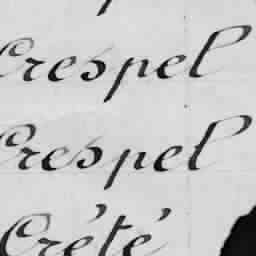 Crespel
Crespel
Crété